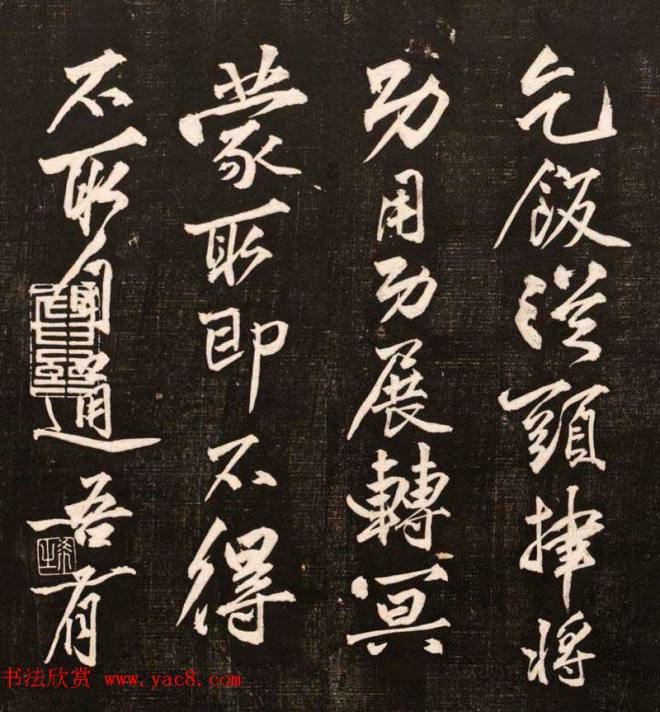 乞飯從頭捽將
功用功展轉冥
蒙取即不得
不取自通吾有
书法欣赏 www.yac8.com